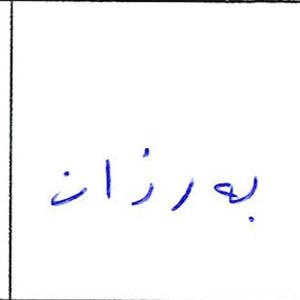 بەرزان